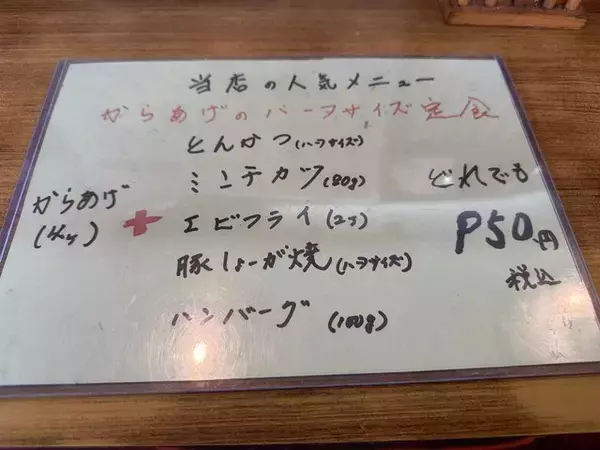 当店の人気メニュー
からあげのハーフサイズ定食
からあげ
(4ヶ)
+
とんかつ(ハーフサイズ)
ミンチカツ(80g)
エビフライ(2ヶ)
豚しょーが焼(ハーフサイズ)
ハンバーグ(100g)
どれでも
950円
税込